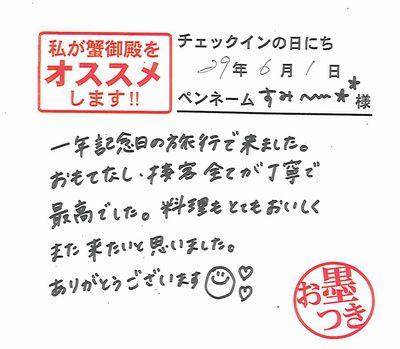 私が蟹御殿を
オススメ
します!!
チェックインの日にち
29年6月1日
ペンネーム すみ〜** 様
一年記念日の旅行で来ました。
おもてなし・接客全てが丁寧で
最高でした。料理もとてもおいしく
また来たいと思いました。
ありがとうございます
墨
おつき